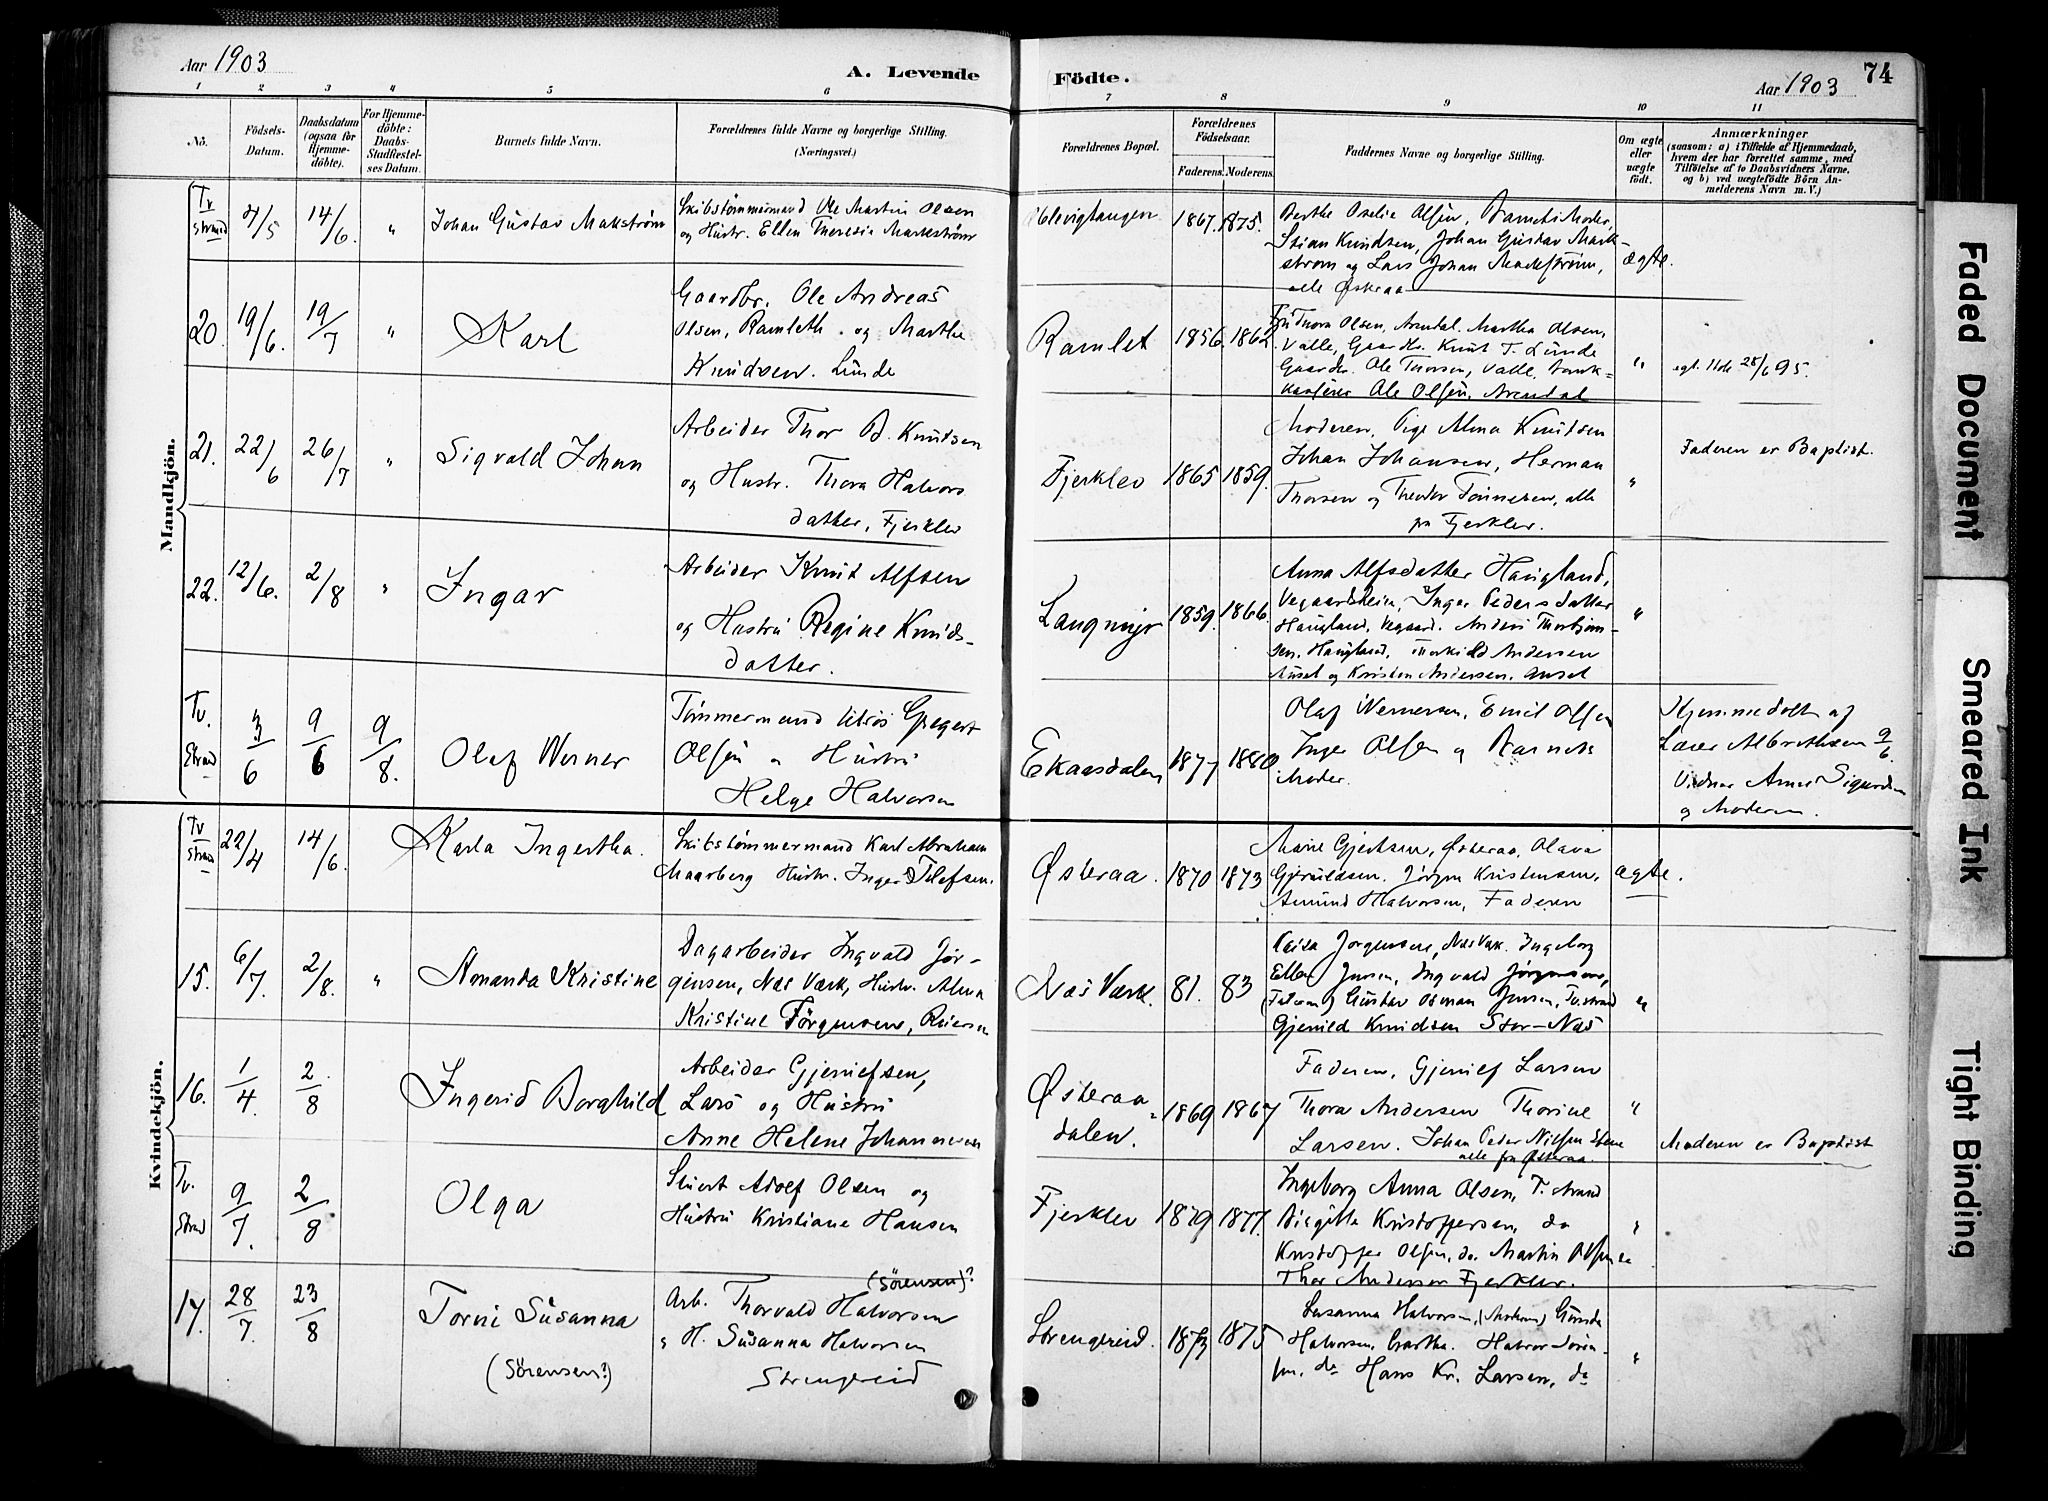 Aar 1903
A. Levende
Födte.
Aar 1903
74
1 2 3 4 5 6 7 8 9 10 11
No.
Födsels-Datum.
Daabsdatum (ogsaa for Hjemme-döbte).
For Hjemme-döbte: Daabs-Stadfæstel-ses Datum.
Barnets fulde Navn.
Forældrenes fulde Navne og borgerlige Stilling.
(Næringsvei.)
Forældrenes Bopæl.
Forældrenes Födselsaar.
Faderens. Moderens.
Faddernes Navne og borgerlige Stilling.
Om ægte eller uægte födt.
Anmærkninger
(saasom: a) i Tilfælde af Hjemmedaab,
hvem der har forrettet samme, med
Tilföielse af to Daabsvidners Navne,
og b) ved uægtefödte Börn An-
melderens Navn m. V.)
Mandkjön.
Tv strand 4/5 14/6. " Johan Gustav Markström
Skibstømmermand Ole Martin Olsen
og Hustr. Ellen Theresia Markström
1867. 1875.
Berthe Oselie Olsen, Barnets Moder,
Stian Knudsen, Johan Gustav Mark-
strøm og Lars Johan Markstrøm,
alle Østeraa
ægte.
20. 19/6. 19/7 " Karl
Gaardbr. Ole Andreas
Olsen, Ramleth. og Marthe
Knudsen. Lunde
Ramlet 1856. 1862
Thora Olsen, Arendal. Martha Olsen,
Valle, Gaardbr. Knut T. Lunde
Gaardbr. Ole Thorsen, Valle,
Ole Olsen, Arendal
"
28/6 95.
21. 22/6 26/7 " Sigvald Johan
Arbeider Thor B. Knutsen
og Hustr. Thora Halvors
datter, Fjerklev
Fjerklev 1865 1859.
Moderen, Pige Alma Knutsen
Johan Johansen, Herman
Thorsen og Theodor Tønnesen, alle
fra Fjerklev.
"
Faderen er Baptist.
22. 12/6. 2/8 " Ingar
Arbeider Knut Alfsen
og Hustru Regine Knuds-
datter.
Langmyr 1859. 1866.
Anna Alfsdatter Haugland,
Vegaardsheien, Inger Pedersdatter
Haugland, Vegaard. Anders Thorbjørn-
sen, Haugland, Thorkild Andersen
Auset og Kristen Andersen, Auset
"
Tv. Strand 3/6 9/6 9/8. Olaf Werner
Tømmermand Gregert
Olsen og Hustru
Helge Halvorsen
Ekaasdalen 1877 1880
Olaf Wernersen, Emil Olsen
Inger Olsen og Barnets
Moder.
Hjemmedøbt af
Lærer Albrethsen 9/6.
Vidner Anne Sigurdsen
og Moderen.
Kvindekjön.
Tv strand 22/4 14/6. Karla Ingertha.
Skibstømmermand Karl Abraham
Maarberg Hustr. Inger Tellefsen.
Østeraa. 1870 1873
Marie Gjertsen, Østeraa, Olava
Gjeruldsen. Jörgen Kristensen,
Amund Halvorsen, Faderen
ægte.
15. 6/7. 2/8. " Amanda Kristine
Dagarbeider Ingvald Jör-
gensen, Næs Værk, Hustr. Alma
Kristine Jörgensen,
Næs Værk. 81. 83
Jörgensen, Næs Værk. Ingeborg
Ellen Jensen, Ingvald Jörgensen,
(Faderen) Gustav Osman Jensen, Tv.strand
Gjeruld Knudsen Stor-Næs
"
16. 1/4. 2/8 " Ingerid Borghild
Arbeider Gjerulfsen,
Lars og Hustru
Anne Helene Johannesen
Østeraa-
dalen. 1869 1867
Faderen, Gjerulf Larsen
Thora Andersen Thorine
Larsen. Johan Peder Nilsen
alle fra Østeraa.
"
Moderen er Baptist
Tv. Strand 9/7. 2/8 Olga
Sivert Adolf Olsen og
Hustru Kristiane Hansen
Fjerklev 1879 1877.
Ingeborg Anna Olsen, T. strand
Birgitte Kristoffersen, do
Kristoffer Olsen, do. Martin Olsen do
Thor Andersen Fjerklev.
"
17. 28/7. 23/8 Torni Susanna
(Sörensen?)
(Sörensen)?
Arb. Thorvald Halvorsen
" H. Susanna Halvorsen
Strengereid
Strengereid. 1873 1875
Susanna Halvorsen, (Moderen) Gunda
Halvorsen, Halvor Sören-
sen, do Hans Kr. Larsen, do
"
Faded Document
Smeared Ink
Tight Binding